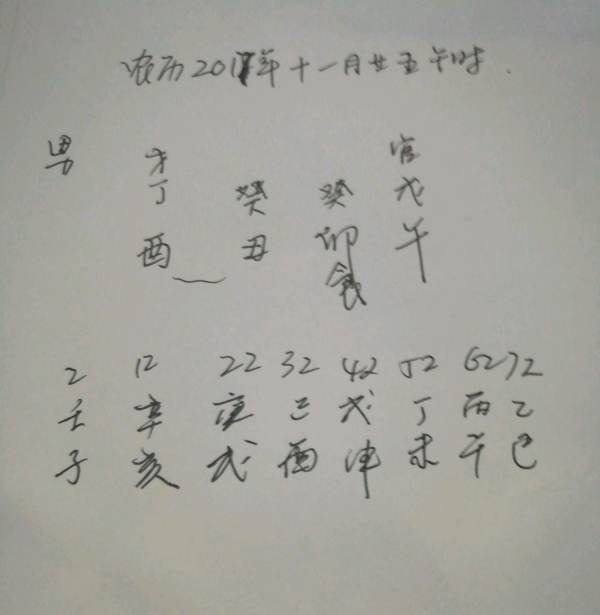 农历2017年十一月廿五午时.
男 才 官
丁 癸 癸 戊
酉 丑 卯 午
食
2 12 22 32 42 52 62 72
壬 辛 庚 己 戊 丁 丙 乙
子 亥 戌 酉 申 未 午 巳